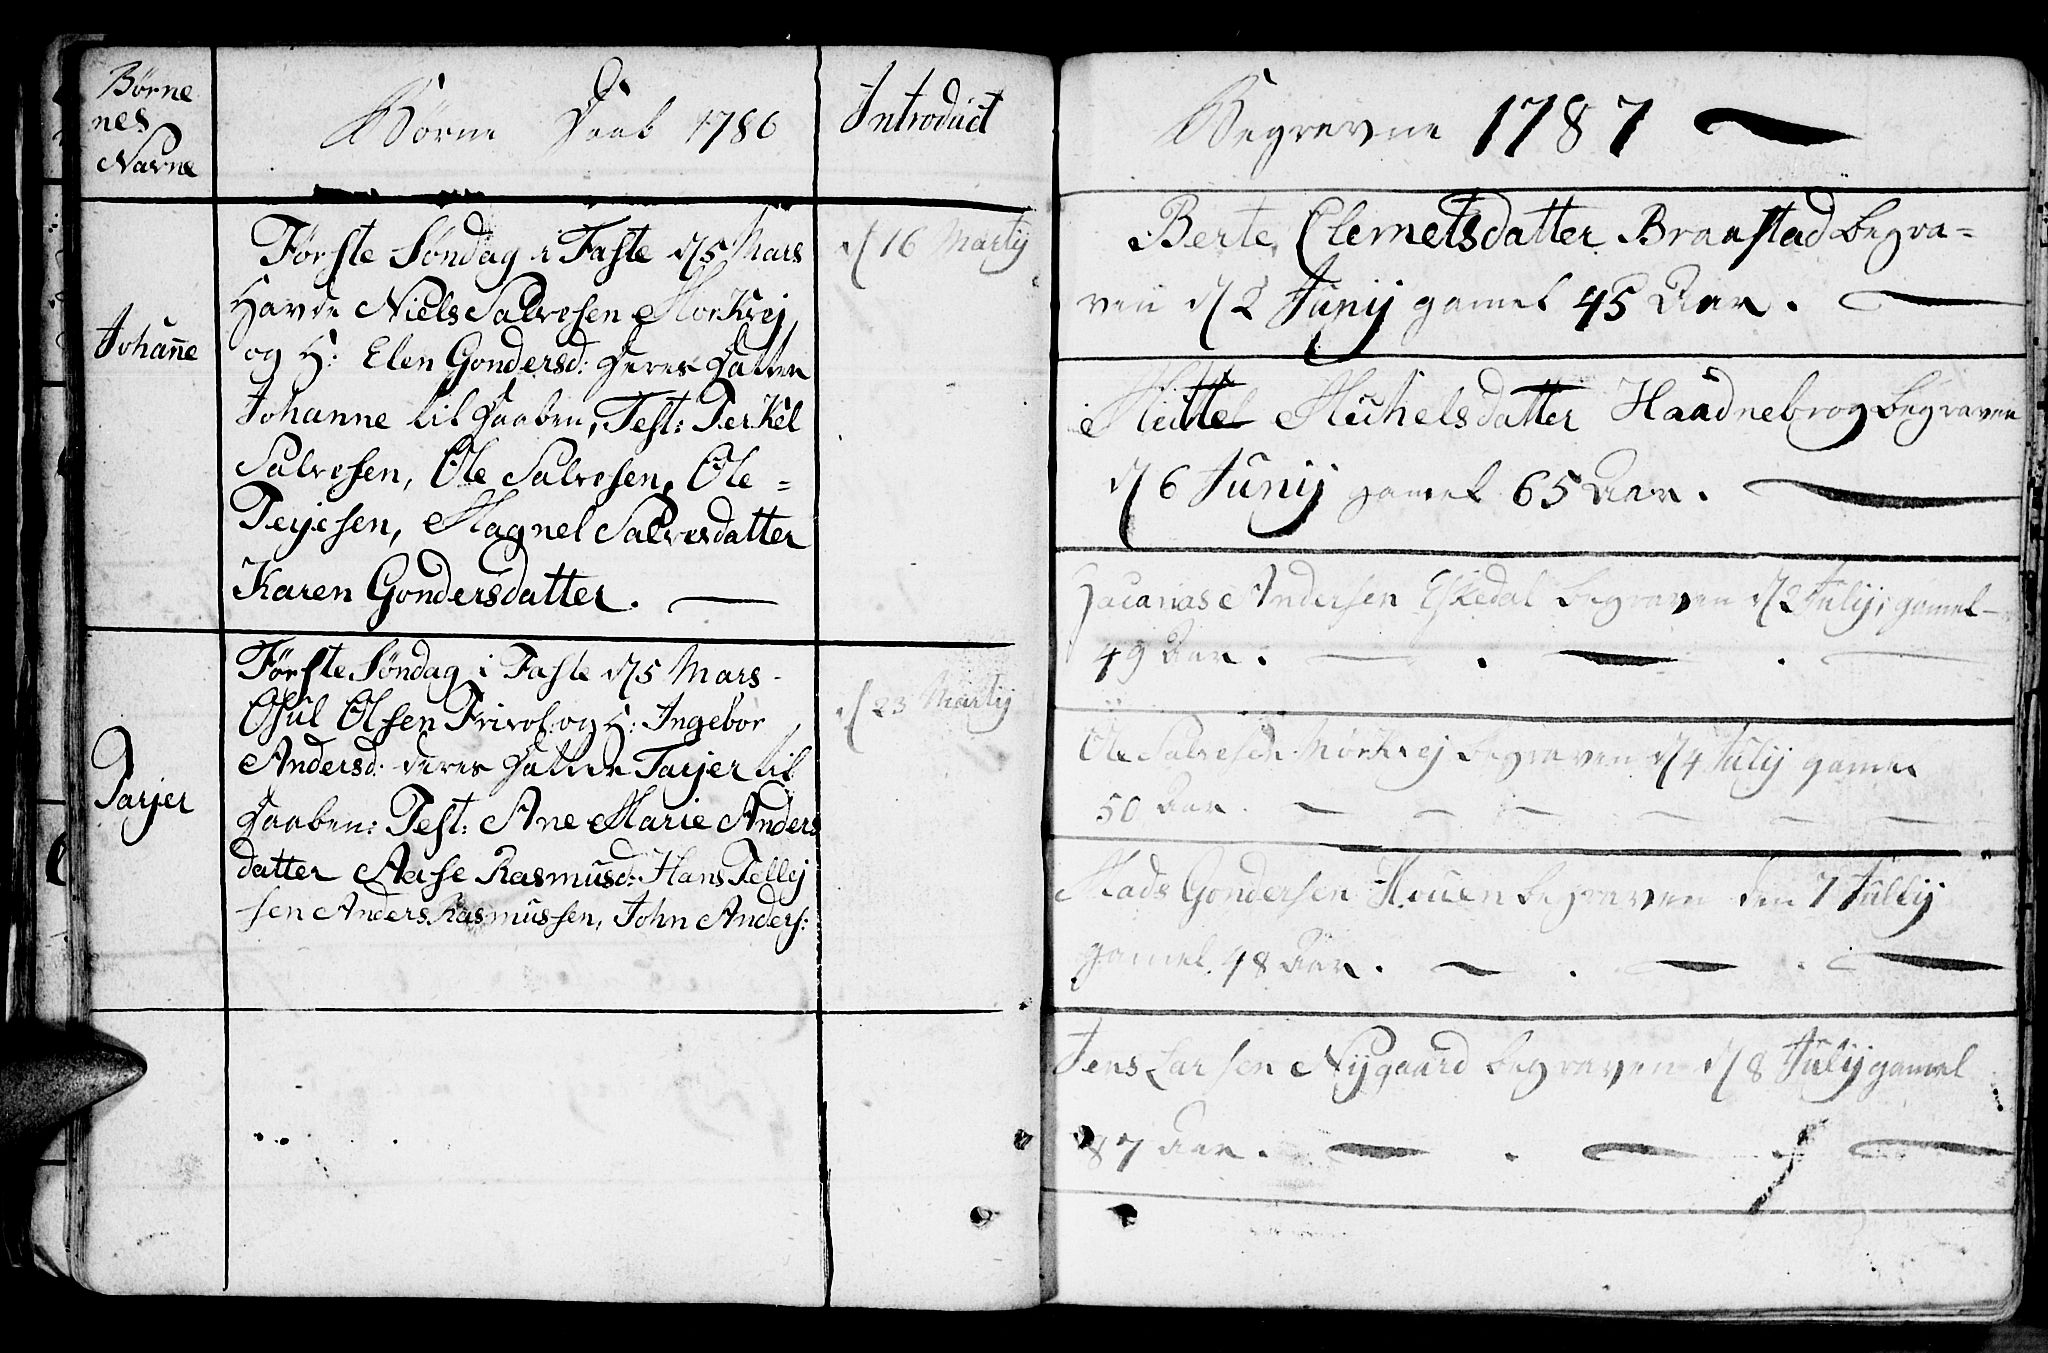 Børne
nes
Navne
Børne Daab 1786
Introduct
Johañe
Første Søndag i Faste d/5 Mars
Havde Niels Salvesen Morkvej
og H: Elen Gondersd: deres Datter
Johanne til Daaben, Test: Terkel
Salvesen, Ole Salvesen, Ole =
Terjesen, Magnel Salvesdatter
Karen Gondersdatter.
d/16 Martij
Tarjer
Første Søndag i Faste d/5 Mars
Osul Olsen Frivol og H: Ingebor
Andersd: deres Tarjer til
Daaben: Test: Ane Marie Anders
datter Aase Rasmusd: Hans Tellej
sen Anders Rasmussen, John Anders:
d/23 Martij
Begravne 1787
Berte Clemetsdatter Braastad begra=
ven d/2 Junij gamel 45 Aar.
Mittel Michelsdatter Haadnebrog begraven
d/6 Junij gamel 65 Aar.
Zacarias Andersen Eskedal begraven d/2 Julij, gamel
49 Aar.
Ole Salvesen Mørkvej begraven d/4 Julij gamel
50 Aar.
Mads Gondersen Houen begraven den 7 Julij
gamel 48 Aar.
Jens Larsen Nygaard begraven d/8 Julij gamel
87 Aar.